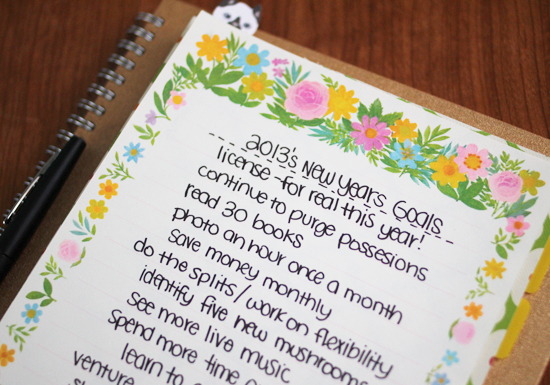 2013's New Years Goals
license - for real this year!
continue to purge possesions
read 30 books
photo an hour once a month
save money monthly
do the splits/work on flexibility
identify five new mushrooms
see more live music
spend more time
learn to
venture